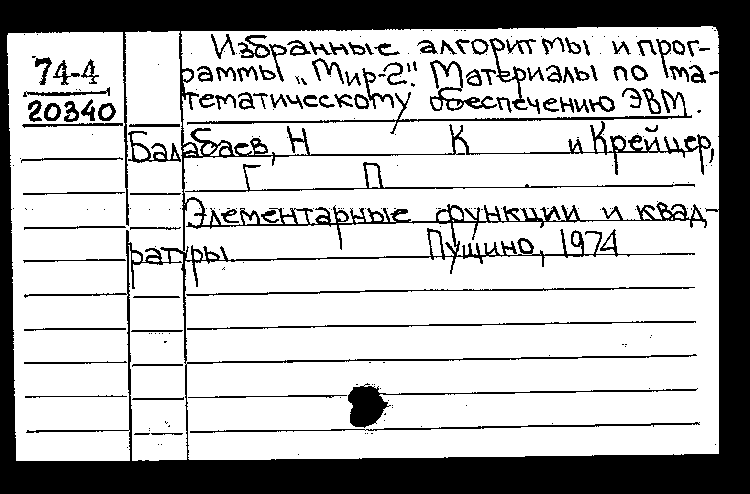 74-4
20340
Избранные алгоритмы и прог-
раммы „Мир-2". Материалы по ма-
тематическому обеспечению ЭВМ.
Балабаев, Н К и Крейцер,
Г П
Элементарные функции и квад-
ратуры. Пущино, 1974